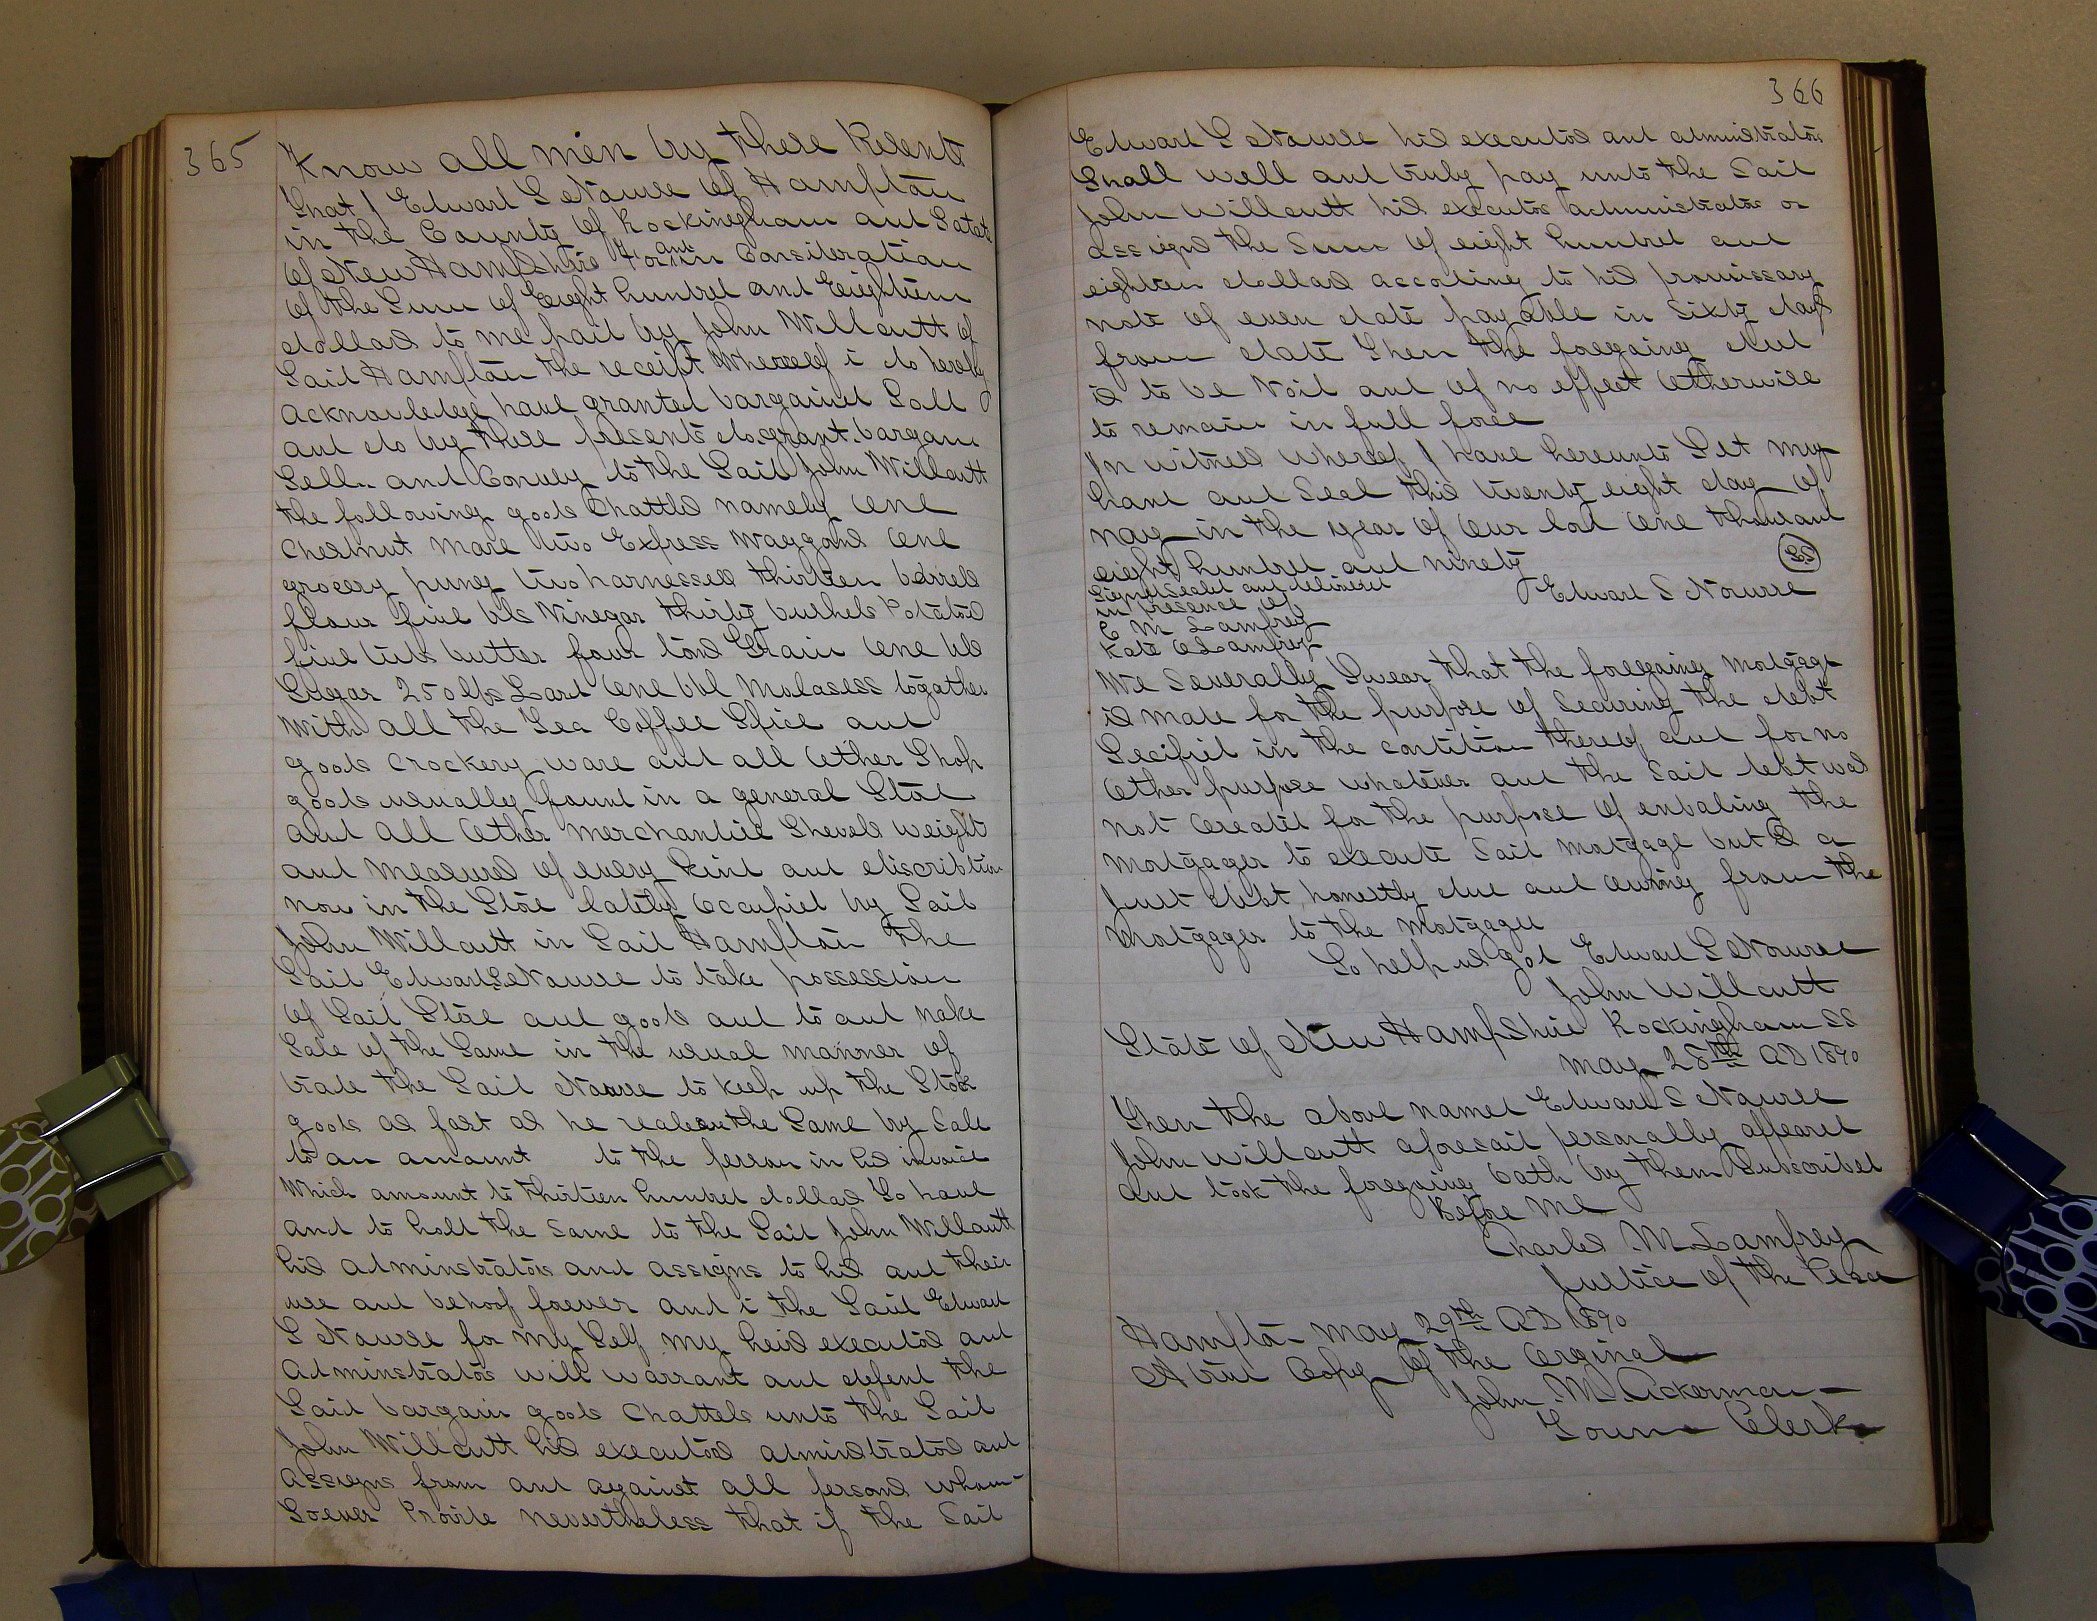 365
Know all men by these Presents
That I Edward S Nourse of Hampton
in the County of Rockingham and Satate
of New Hampshire For and in Consideration
of the Sum of Eeight hundred and Eeighteen
dollars to me paid by John Willcutt of
Said Hampton the receipt Whereof i do hereby
acknowledge have granted bargained Sold
and do by these presents do grant bargain
Sell and Convey to the Said John Willcutt
the following goods Chattls namely One
Chestnut Mare two Express Waggons One
grocery pung two harnesses thirteen barrels
flour five bls Vinegar thirty bushels Potatos
five tubs butter four tons Grain One bbl
Sugar 250 lbs Lard One bbl Molasess togather
With all the Tea Coffee Spice and
goods crockery ware and all Other Shop
goods usually found in a general Store
and all Other Merchandise Shevels weight
and Measures of every Kind and discribtion
now in the Store lately Occupied by Said
John Willcutt in Said Hampton the
Said Edward S Nourse to take possession
of Said Store and goods and to and make
Sale of the Same in the usual manner of
trade the Said Nourse to keep up the Stock
goods as fast as he the Same by Sale
to an amount to the person in his invoice
Which amount to thirteen hundred dollars To have
and to hold the Same to the Said John Willcutt
his adminstrators and assigns to his and their
use and behoof forever and i the Said Edward
S Nourse for My Self my heirs executors and
adminstrators will warrant and defend the
Said bargain goods Chattels unto the Said
John Willcutt his executors admistrators and
assigns from and against all persons whom-
Soever Provide nevertheless that if the Said
366
Edward S Nourse his executors and administrators
Shall well and truly pay unto the Said
John Willcutt his executors administrators or
assigns the Sum of eight hundred and
eighteen dollars accoding to his promissary
note of even date payable in Sixty days
from date Then the foregoing deed
is to be Void and of no effect Otherwise
to remain in full force
In witness whereof I have hereunto Set my
hand and Seal this twenty eight day of
may in the year of Our lord One thousand
eight hundred and ninety
LS
Signed Sealed and delivered
in presence of
Edward S Nourse
C M Lamprey
Kate O Lamprey
We Severally Swear that the foregoing Mortgage
is made for the purpose of Securing the debt
Secified in the condition thereof and for no
Other purpose whatever and the Said debt was
not Created for the purpose of enbaling the
Mortgager to execute Said Mortgage but is a
Just debt honestly due and Owing from the
Mortgager to the Mortgagee
So help us god Edward S Nourse
John Willcutt
State of New Hampshire Rockingham SS
May 28th AD 1890
Then the above named Edward S Nourse
John Willcutt aforesaid personally appeared
and took the foregoing Oath by them Subscribed
Before Me
Charles M Lamprey
Justice of the Peace
Hampton May 29th AD 1890
A true Copy of the Orginal
John M Ackerman
Town Clerk